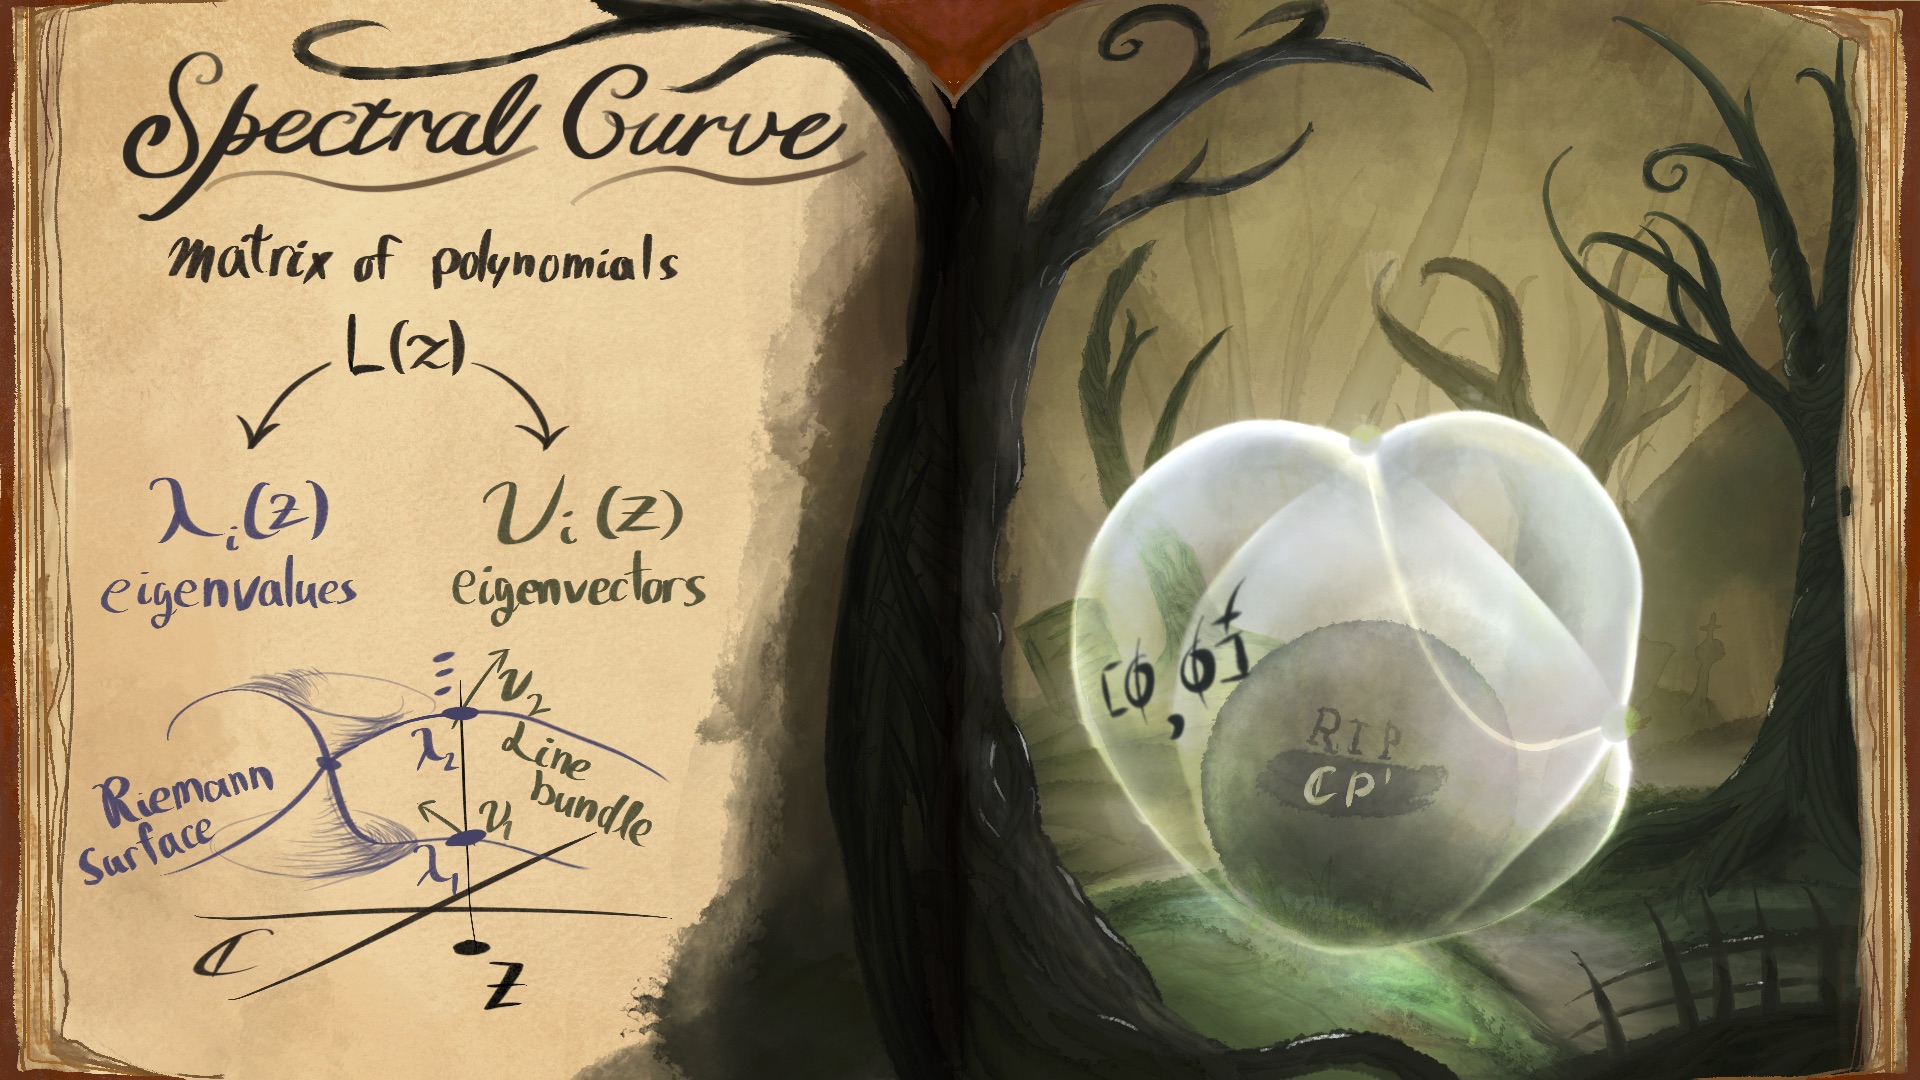 Spectral Curve
matrix of polynomials
L(z)
λᵢ(z)
eigenvalues
vᵢ(z)
eigenvectors
v₂
λ₂
Line
bundle
Riemann
Surface
v₁
λ₁
ℂ
z
[ϕ, ϕ⁺]
RIP
CP¹